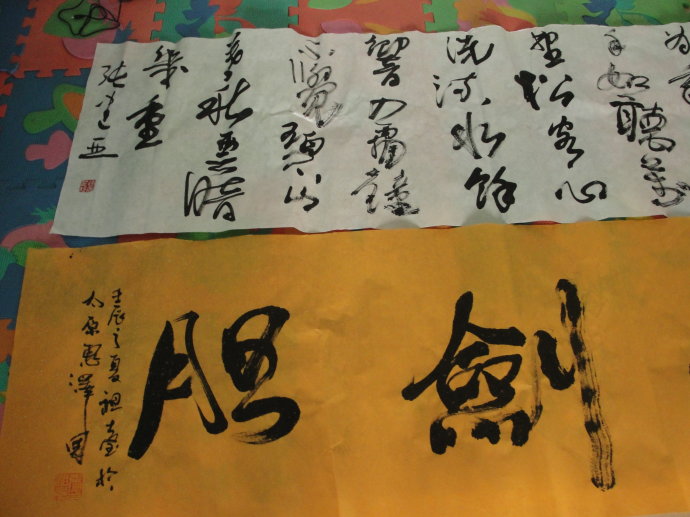 為
手如聽萬
壑松客心
洗流水餘
響入霜鐘
不覺碧山
暮秋雲暗
幾重
張 亞
劍胆
壬辰之夏 於
太原 澤國